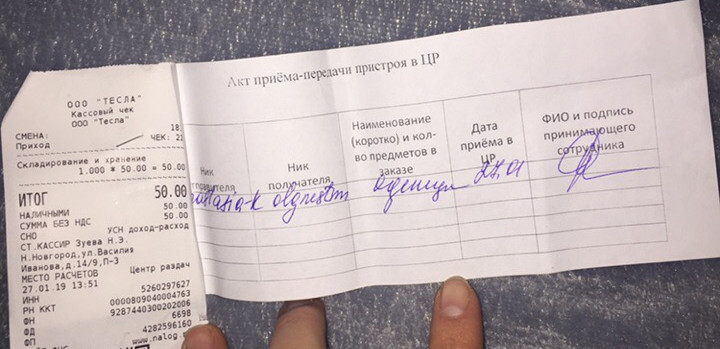 ООО "ТЕСЛА"
Кассовый чек
ООО "Тесла"
СМЕНА: 18
Приход ЧЕК: 2
Складирование и хранение
1.000 * 50.00 = 50.00
ИТОГ 50.00
НАЛИЧНЫМИ 50.00
СУММА БЕЗ НДС 50.00
СНО УСН доход-расход
СТ.КАССИР Зуева Н.Э.
Н.Новгород,ул.Василия
Иванова,д.14/9,П-3
МЕСТО РАСЧЕТОВ Центр раздач
27.01.19 13:51
ИНН 5260297627
РН ККТ 0000809040004763
ФН 9287440300202006
ФД 6698
ФП 4282596160
www.nalog.
Акт приёма-передачи пристроя в ЦР
Ник
отправителя
Ник
получателя
Наименование
(коротко) и кол-
во предметов в
заказе
Дата
приёма в
ЦР
ФИО и подпись
принимающего
сотрудника
27.01